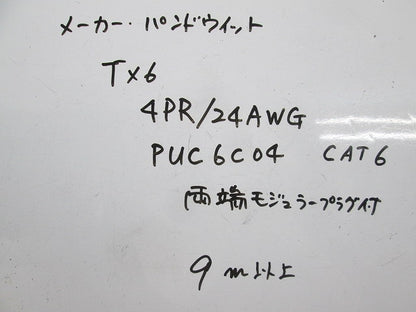 メーカー・パンドウィット
TX6
4PR/24AWG
PUC6C04 CAT6
両端モジュラープラグ付
9m以上